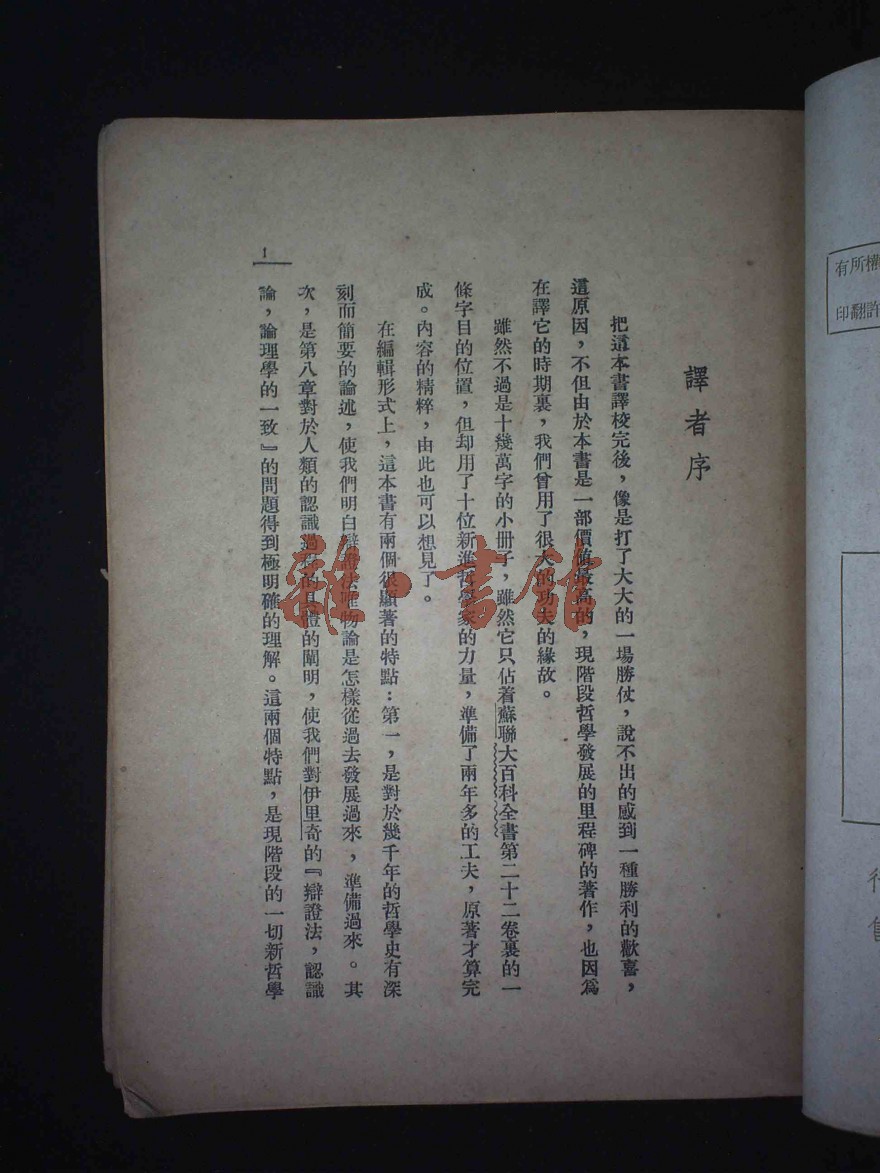 譯者序
把這本書譯校完後，像是打了大大的一場勝仗，說不出的感到一種勝利的歡喜，
這原因，不但由於本書是一部價値最高的，現階段哲學發展的里程碑的著作，也因爲
在譯它的時期裏，我們曾用了很大的功夫的緣故。
雖然不過是十幾萬字的小册子，雖然它只佔着蘇聯大百科全書第二十二卷裏的一
條字目的位置，但却用了十位新進哲學家的力量，準備了兩年多的工夫，原著才算完
成。內容的精粹，由此也可以想見了。
在編輯形式上，這本書有兩個很顯著的特點：第一，是對於幾千年的哲學史有深
刻而簡要的論述，使我們明白辯證法唯物論是怎樣從過去發展過來，準備過來。其
次，是第八章對於人類的認識過程的具體的闡明，使我們對伊里奇的『辯證法，認識
論，論理學的一致』的問題得到極明確的理解。這兩個特點，是現階段的一切新哲學
1
有所權
印翻許
行售
雜·書館